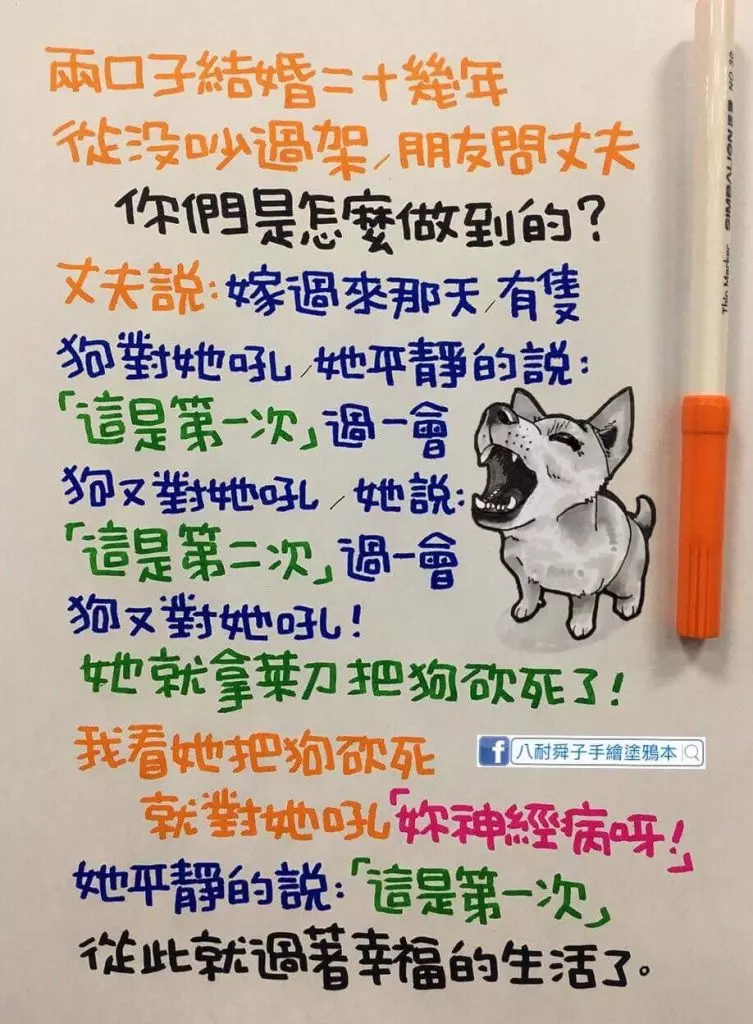 兩口子結婚二十幾年
從没吵過架/朋友問丈夫
你們是怎麼做到的?
丈夫說:嫁過來那天/有隻
狗對她吼/她平靜的說:
「這是第一次」過一會
狗又對她吼/她說:
「這是第二次」過一會
狗又對她吼!
她就拿菜刀把狗砍死了!
我看她把狗砍死
就對她吼「妳神經病呀!」
她平靜的說:「這是第一次」
從此就過著幸福的生活了。
八耐舜子手繪塗鴉本
Thin Marker SIMBALION NO.